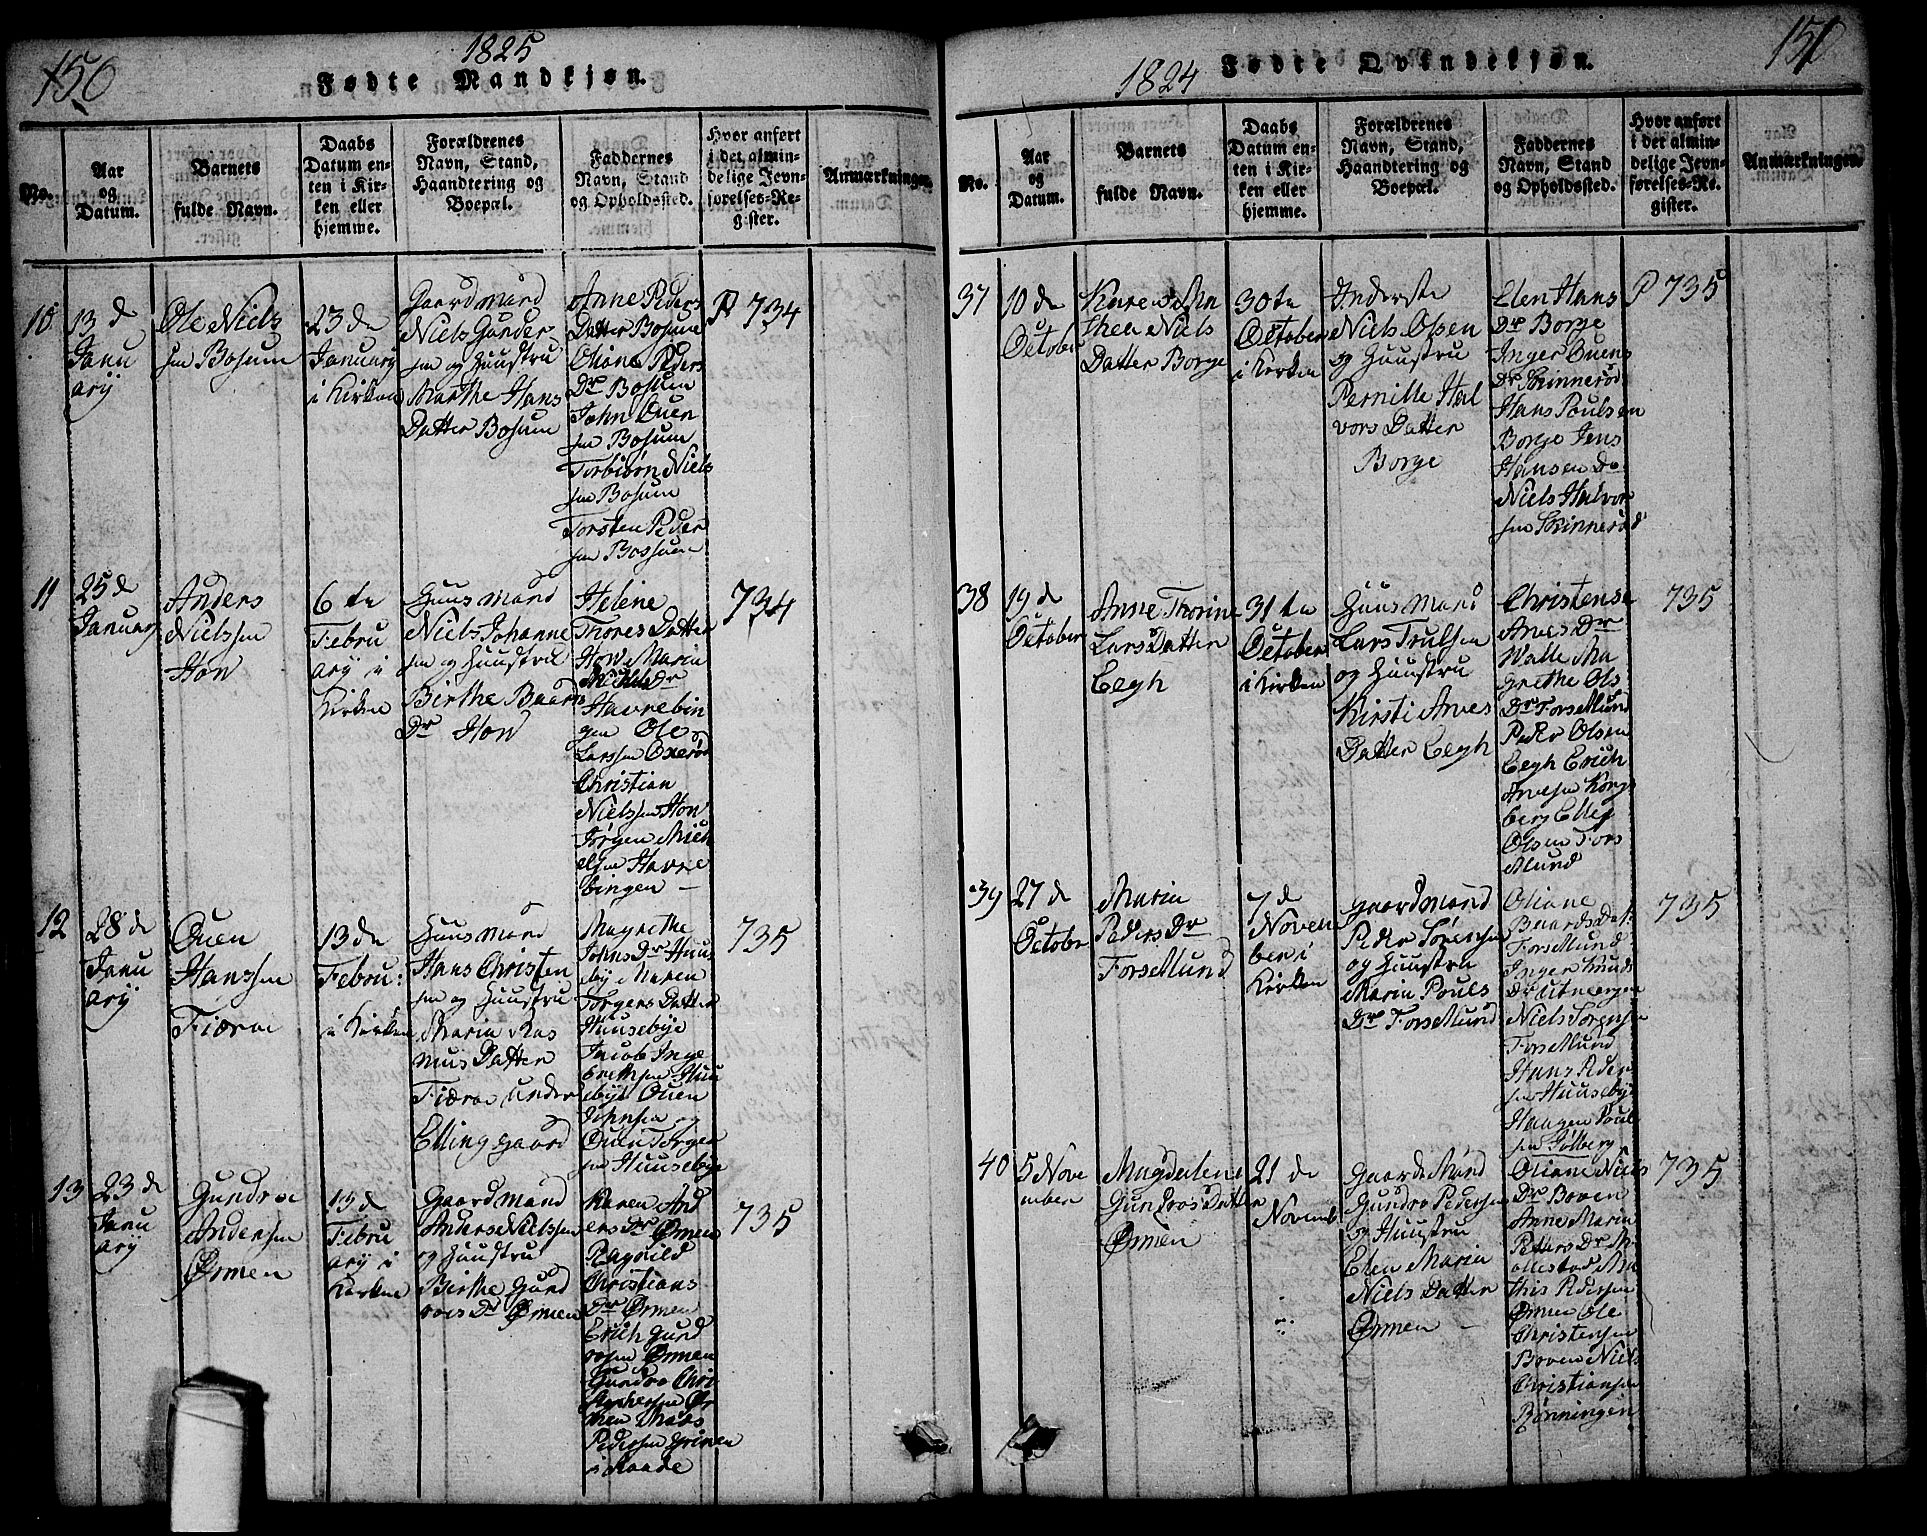 150
1825
Fødte Mandkjøn.
No.
Aar
og
Datum.
Barnets
fulde Navn.
Daabs
Datum en-
ten i Kir-
ken eller
hjemme.
Forældrenes
Navn, Stand,
Haandtering og
Boepæl.
Faddernes
Navn, Stand
og Opholdssted.
Hvor anført
i det almin-
delige Jevn-
førelses-Re-
gister.
Anmærkninger.
10
13 d
Janu
ary
Ole Niels
sen Bosum
23 de
January
i Kirken
Gaardmand
Niels Gunder
sen og Huustru
Marthe Hans
Datter Bosum
Anne Peders
Datter Bosum
Oliane Peders
Dr Bosum
John Ouen
sen Bosum
Torbiørn Niels
sen Bosum
Torsten Peder
sen Bossum
P 734
11
25 d
January
Anders
Nielssen
Hon
6 te
Febru
ary i
Kirken
Huusmand
Niels Johanne
sen og Huustru
Birthe Baards
Dr Hon
Helene
Thores Datter
How Maria
Nichels Dr
Havrebin
gen Ole
Larssen Oxerød
Christian
Nielssen Hon
Jørgen Mich
elsen Havre
bingen –
734
12
28 de
Janu
ary
Ouen
Hanssen
Fiæroe
13 de
Febru:
i Kirken
Huusmand
Hans Christen
sen og Huustru
Maria Ras
mus Datter
Fiæroe under
Ellingaard
Magrethe
Johns Dr Huus
bÿ Maren
Torgers Datter
Huusebÿe
Jacob Inge
brethsen Huu
sebÿe Ouen
Johnsen og
Ouen Torger
sen Huusebye
735
13
23 de
Janu
ary
Gundroe
Andersen
Ørmen
13 d
Febru
ary i
Kirken
Gaardmand
Anders Nielssen
og Huustru
Birthe Gund
roes Dr Ørmen
Karen And
ers Dr Ørmen
Ragnild
Christians
Dr Ørmen
Erich Gund
rosen Ørmen
Gundro Chri
stophersen Ør
men Mads
Pedersen Grimen
i Raade
735
151
1824
Fødte Qvindekjøn.
No.
Aar
og
Datum.
Barnets
fulde Navn.
Daabs
Datum en-
ten i Kir-
ken eller
hjemme.
Forældrenes
Navn, Stand,
Haandtering og
Boepæl.
Faddernes
Navn, Stand
og Opholdssted.
Hvor anført
i det almin-
delige Jevn-
førelses-Re-
gister.
Anmærkninger.
37
10 de
October
Kare
thea Niels
Datter Borge
30 te
October
i Kirken
Inderste
Niels Olsen
og Huustru
Pernille Hal
vors Datter
Borge
Elen Hans
Dr Borge
Inger Ouens
Dr Skinnerød
Hans Poulsen
Borge Jens
Hansen Do
Niels Halvor
sen Skinnerød
P 735
38
19 d
October
Anne Thorine
Lars Datter
Eegh
31 te
October
i Kirken
Huusmand
Lars Trulsen
og Huustru
Kirsti Arves
Datter Eegh
Christense
Arves Dr
Walle Ma
grethe Ols
Dr Forsetlund
Peder Olsen
Eegh Erich
Arvesen Kongs
berg Ellef
Olsen Fors
etlund
735
39
27 d
October
Maria
Peders Dr
Forsetlund
7 d
Novem
ber i
Kirken
Gaardmand
Peder Sørensen
og Huustru
Maria Pouls
Dr Forsetlund
Oliane
Baards Dat:
Forsetlund
Inger Knuds
Dr Utnebergen
Niels Sørensen
Forsetlund
Hans Peder
sen Huusebÿe
Haagen Poul
sen Solberg
735
40
5 Nove
mber
Magdalene
Gundros Datter
Ørmen
21 de
Novemb
Gaardmand
Gundro Pedersen
og Huustru
Elen Maria
Niels Datter
Ørmen –
Oliane Niels
Dr Boven
Anne Maria
Peders Dr M
ollestad Ma
this Pedersen
Ørmen Ole
Christensen
Boven Niels
Christiansen
Bønningen
735